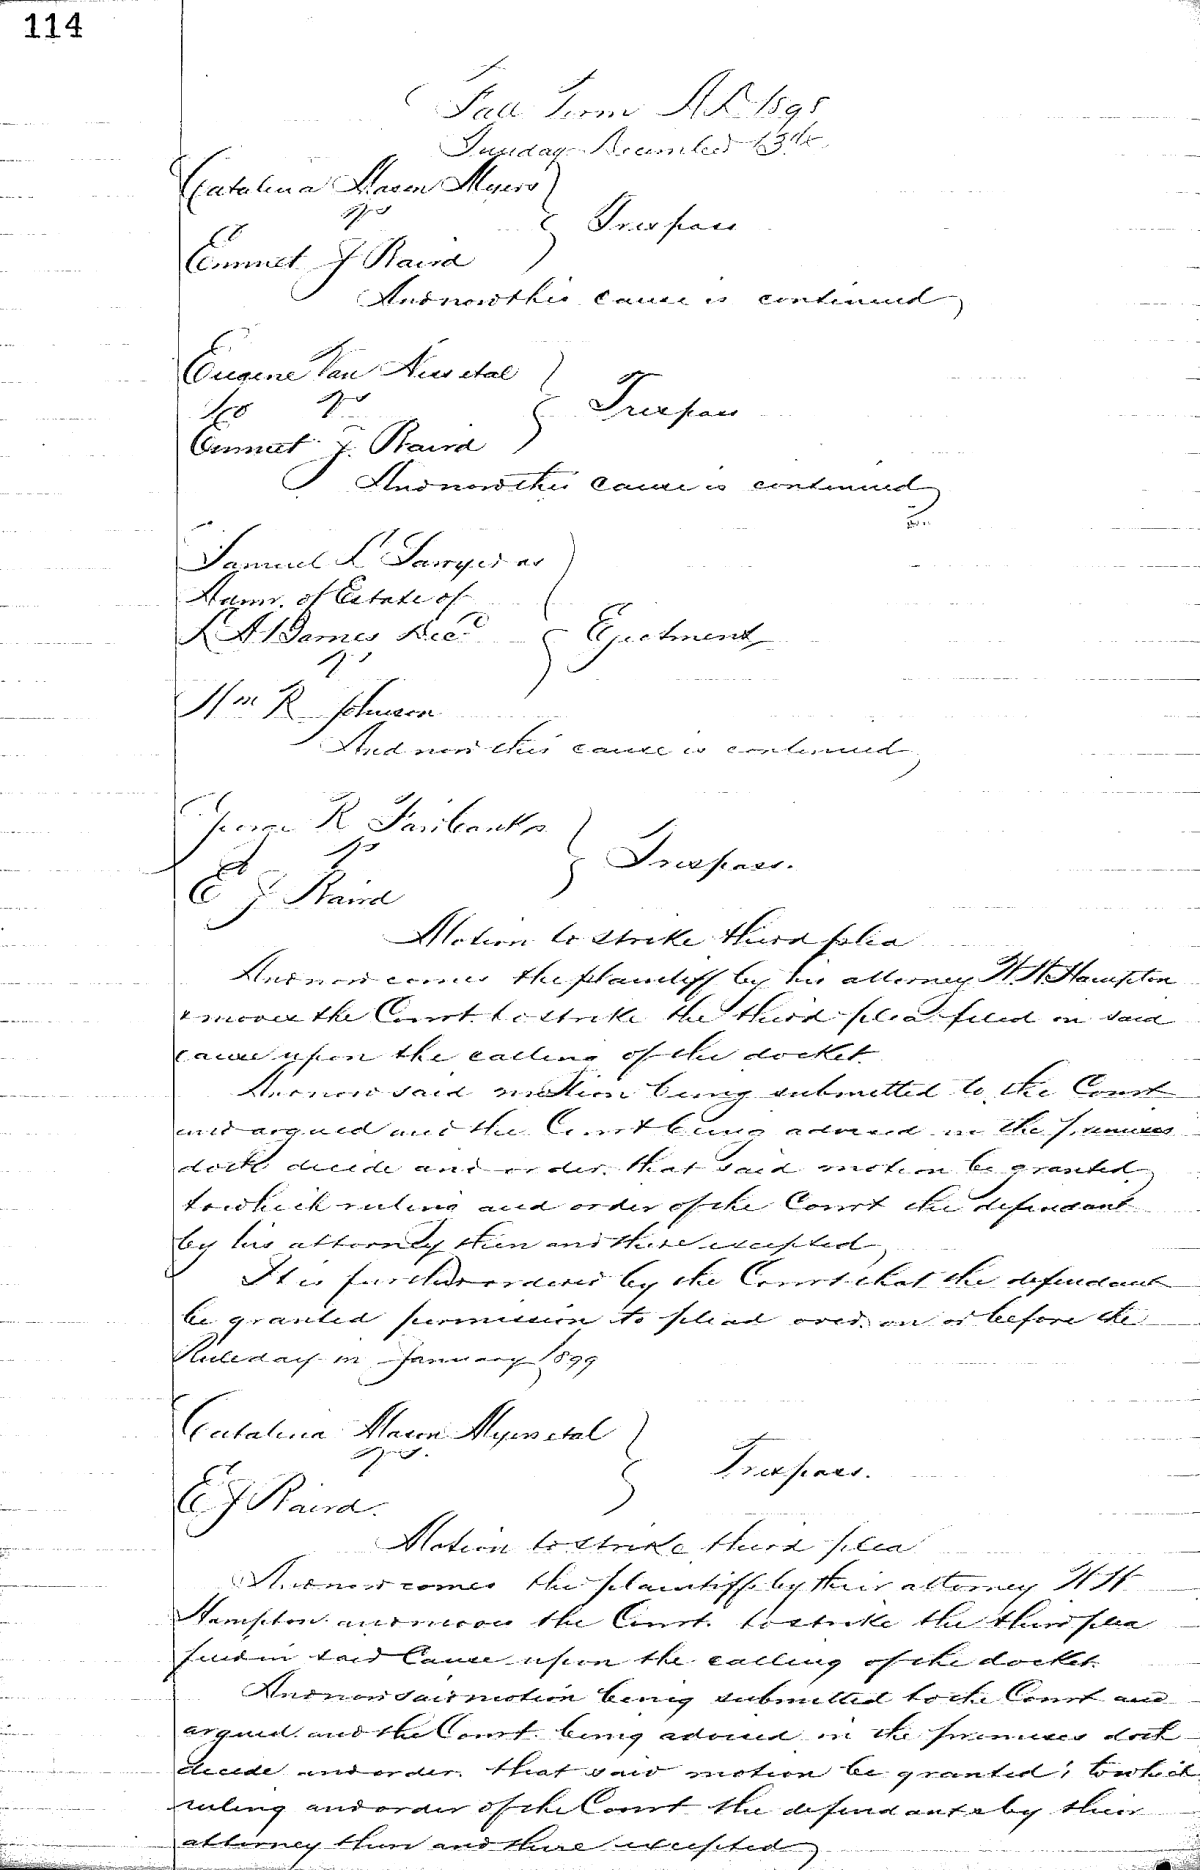 114
Fall Term A.D. 1898
Tuesday December 13th
Catalina Mason Myers
vs
Trespass
Emmet J Baird
And now this cause is continued
Eugene Van Ness et al
vs
Trespass
Emmet J. Baird
And now this cause is continued
Samuel L Sawyer as
Admr. of Estate of
L A Barnes Decd
Ejectment
vs
Wm R Johnson
And now this cause is continued
George R Fairbanks
vs
Trespass.
E J Baird
Motion to strike third plea
And now comes the plaintiff by his attorney W. W. Hampton
& moves the Court to strike the third plea filed in said
cause upon the calling of the docket
And now said motion being submitted to the Court
and argued and the Court being advised in the premises
doth decide and order that said motion be granted
to which ruling and order of the Court the defendant
by his attorney then and there excepted
It is further ordered by the Court that the defendant
be granted permission to plead over on or before the
Rule day in January 1899
Catalina Mason Myers et al
vs.
Trespass.
E J Baird.
Motion to strike third plea
And now comes the plaintiffs by their attorney W W
Hampton and moves the Court to strike the third plea
filed in said Cause upon the calling of the docket
And now said motion being submitted to the Court and
argued and the Court being advised in the premises doth
decide and order that said motion be granted; to which
ruling and order of the Court the defendants by their
attorney then and there excepted